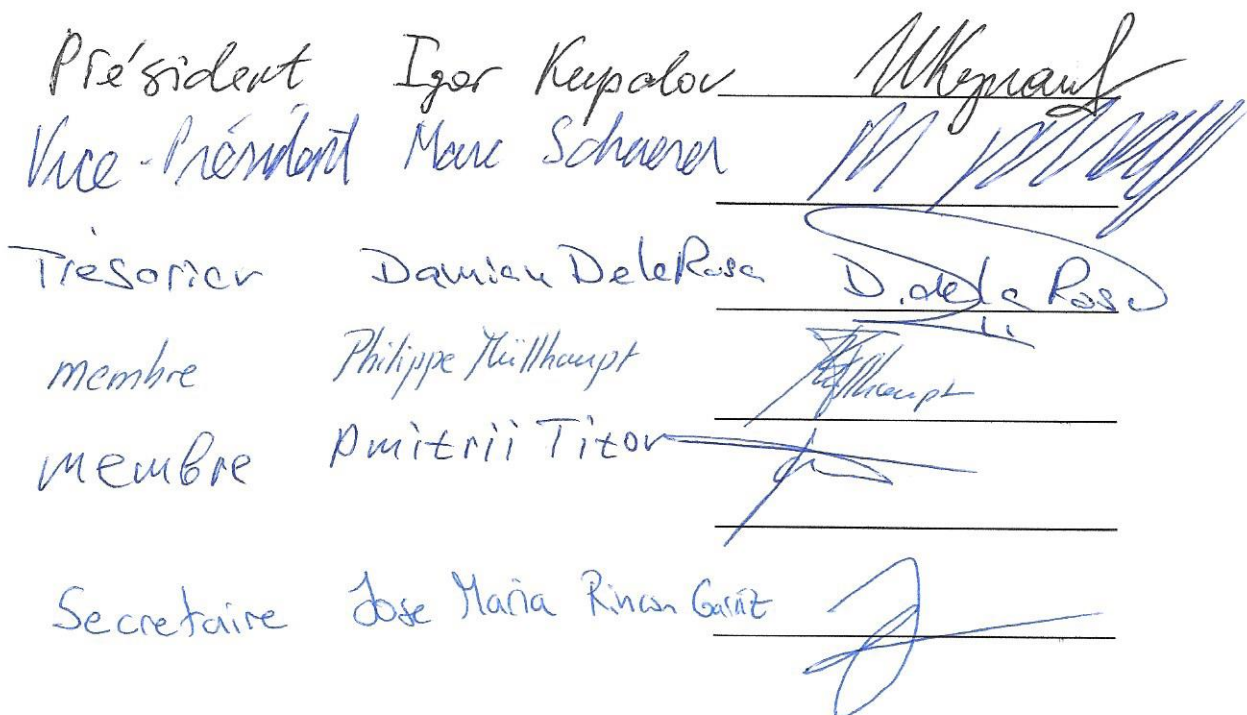 Président Igor Kupalov
Vice-Président Marc Schaerer
Trésorier Damian DelaRosa D. de la Rosa
membre Philippe Müllhaupt Müllhaupt
membre Dmitrii Titov
Secretaire Jose Maria Rincon